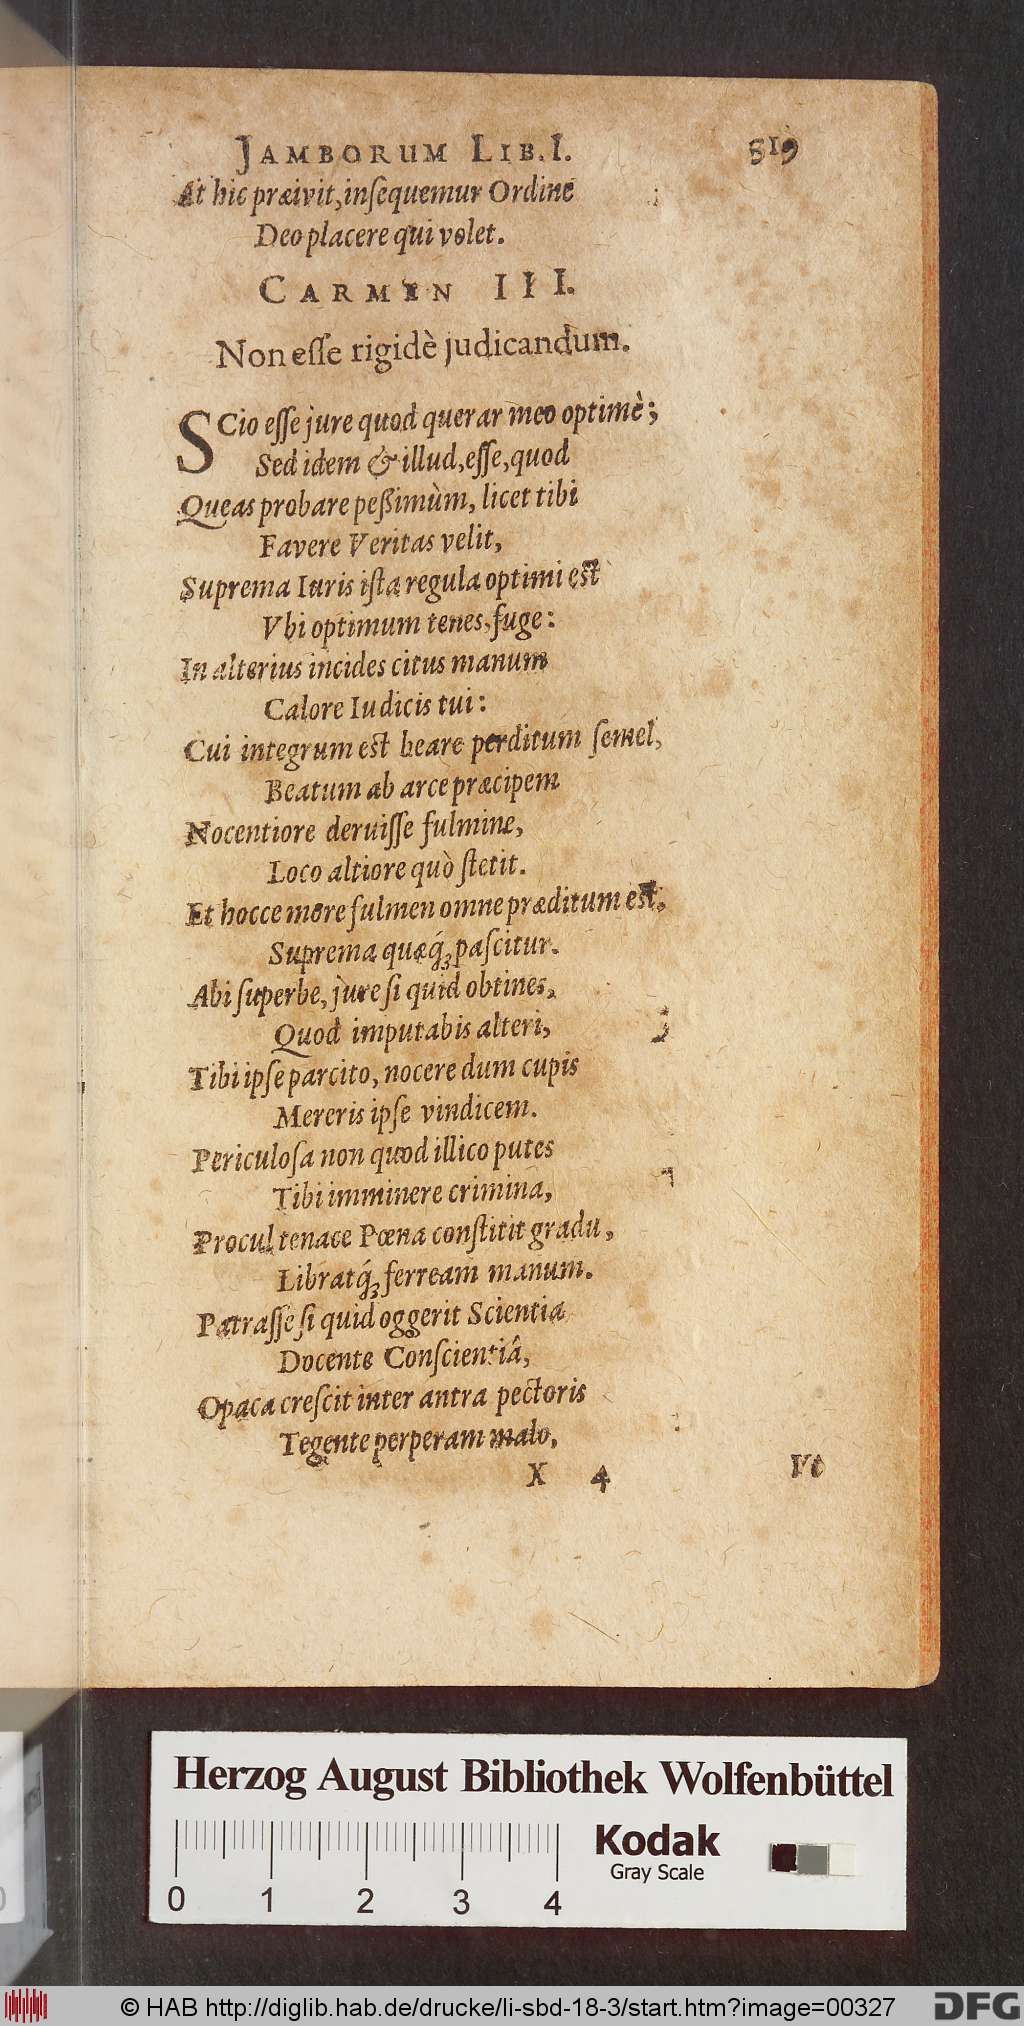 JAMBORUM LIB. I. 819
At hic præivit, insequemur Ordine
Deo placere qui volet.
CARMEN III.
Non esse rigidè judicandum.
SCio esse jure quod querar meo optimè;
Sed idem & illud, esse, quod
Queas probare peßimùm, licet tibi
Favere Veritas velit,
Suprema Iuris ista regula optimi est
Vbi optimum tenes, fuge:
In alterius incides citus manum
Calore Iudicis tui:
Cui integrum est beare perditum semel,
Beatum ab arce præcipem
Nocentiore deruisse fulmine,
Loco altiore quò stetit.
Et hocce more fulmen omne præditum est,
Suprema quæq́; pascitur.
Abi superbe, jure si quid obtines,
Quod imputabis alteri,
Tibi ipse parcito, nocere dum cupis
Mereris ipse vindicem.
Periculosa non quod illico putes
Tibi imminere crimina,
Procul tenace Pœna constitit gradu,
Libratq́; ferream manum.
Patrasse si quid oggerit Scientia
Docente Conscientiâ,
Opaca crescit inter antra pectoris
Tegente perperam malo,
X 4 Vt
Herzog August Bibliothek Wolfenbüttel
0 1 2 3 4
Kodak
Gray Scale
© HAB http://diglib.hab.de/drucke/li-sbd-18-3/start.htm?image=00327
DFG